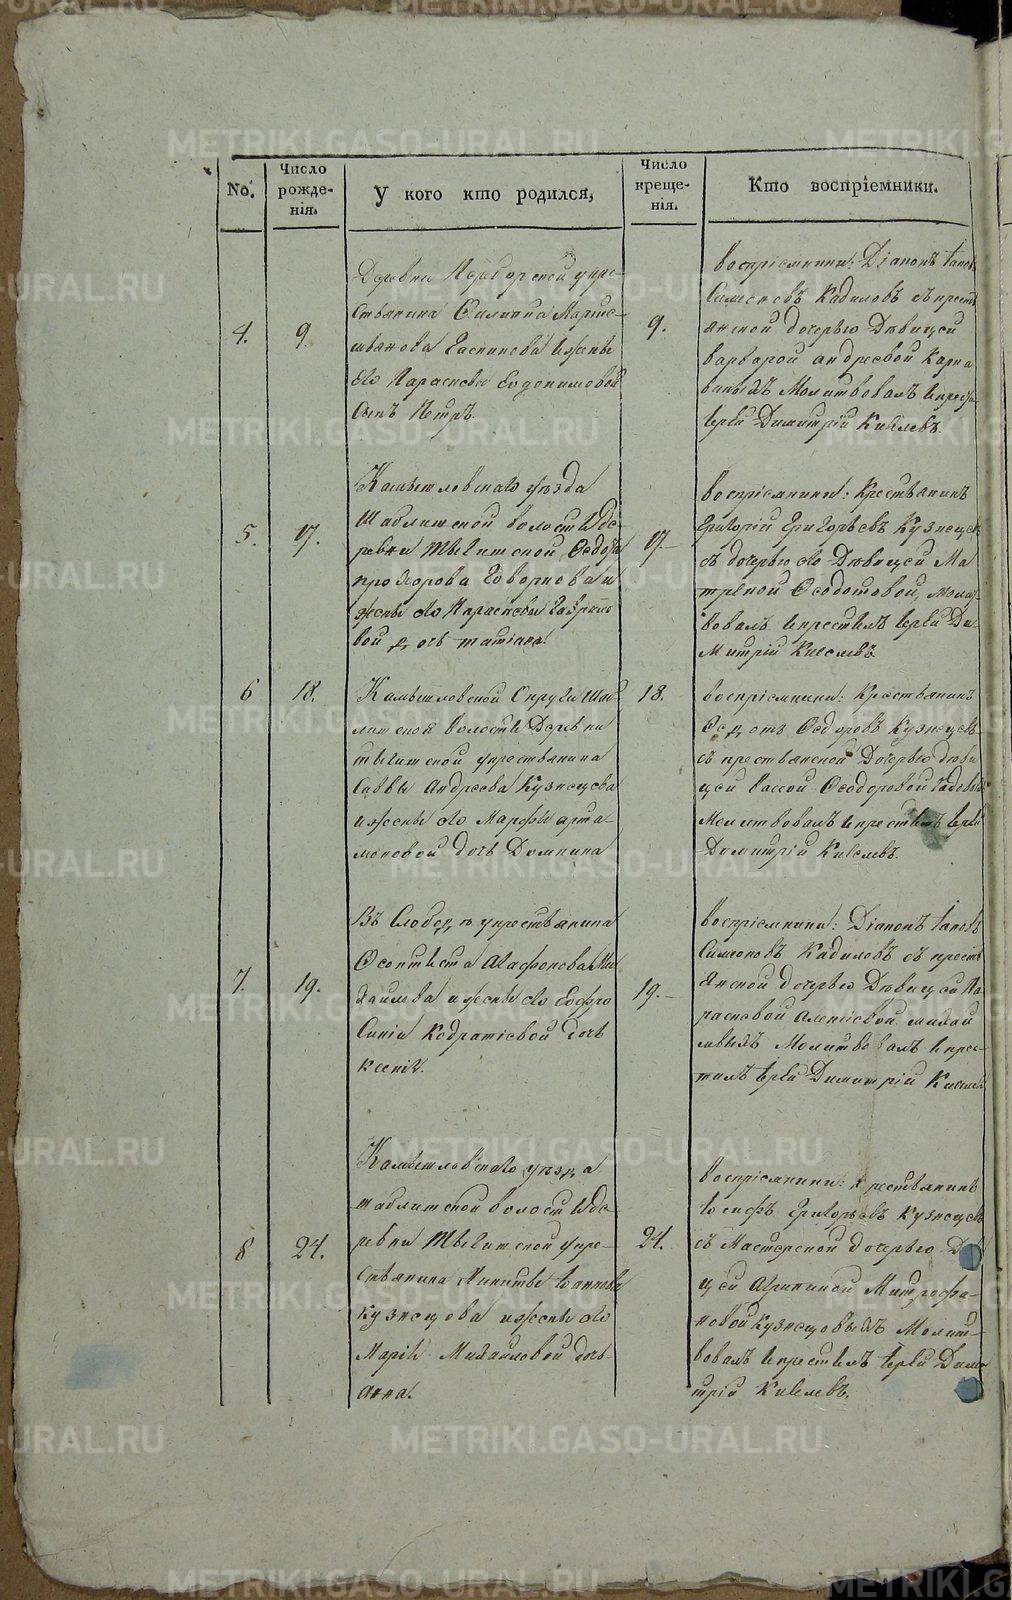 No.
Число рожде-
нія.
У кого кто родился,
Число
креще-
нія.
Кто воспріемники.
4.
9
Деревни
кре-
стьянина Филипа
и жены
его Параскевы Евдокимовой
сынъ Петръ.
9.
воспріемники: Діаконъ Іаковъ
Симеоновъ Кадиловъ съ крестья
янской дочерью Дѣвицей
варварой андреевой
Молитвовалъ и крест-
Іерей Димитрій Киселевъ.
5.
17.
Камышловскаго уѣзда
волости де-
ревни Федота
прохорова Говорнова и
жены его Параскевы Гаврило
вой дочь татіана.
17.
воспріемники: Крестьянинъ
Григорій Григорьевъ Кузнецов
съ дочерью его Дѣвицей Ма
трѣной Феодотовой, молит
вовалъ и крестилъ Іерей Ди-
митрій Киселевъ.
6
18.
Камышловской Округи
волости Деревни
крестьянина
Саввы Андреева Кузнецова
и жены его Марфы арта
моновой дочь Домнина
18.
воспріемники: Крестьянинъ
Федотъ Федоровъ Кузнецовъ
съ крестьянской Дочерью дѣви
цей Вассой Феодоровой
Молитвовалъ и крестилъ Іерей
Димитрій Киселевъ.
7.
19.
Въ Слободѣ крестьянина
Феоктиста Агафонова Ми
хайлова и жены его Евфро
синіи Кодратіевой дочь
ксенія.
19.
воспріемники: Діаконъ Іаковъ
Симеоновъ Кадиловъ съ крестья
янской дочерью Дѣвицей Па-
раскевой Алексіевой михай
ловыхъ Молитвовалъ и крес-
тилъ Іерей Димитрій Киселевъ
8
24.
Камышловскаго уѣзда
волости де-
ревни кре-
стьянина Никиты Іоаннова
Кузнецова и жены его
Маріи Михайловой дочь
анна.
24.
воспріемники: крестьянинъ
Іосифъ Григорьевъ Кузнецовъ
съ Мастерской дочерью
цей Агрипиной Митрофа-
новой Кузнецовыхъ Молит-
вовалъ и крестилъ Іерей Дими
трій Киселевъ.
METRIKI.GASO-URAL.RU